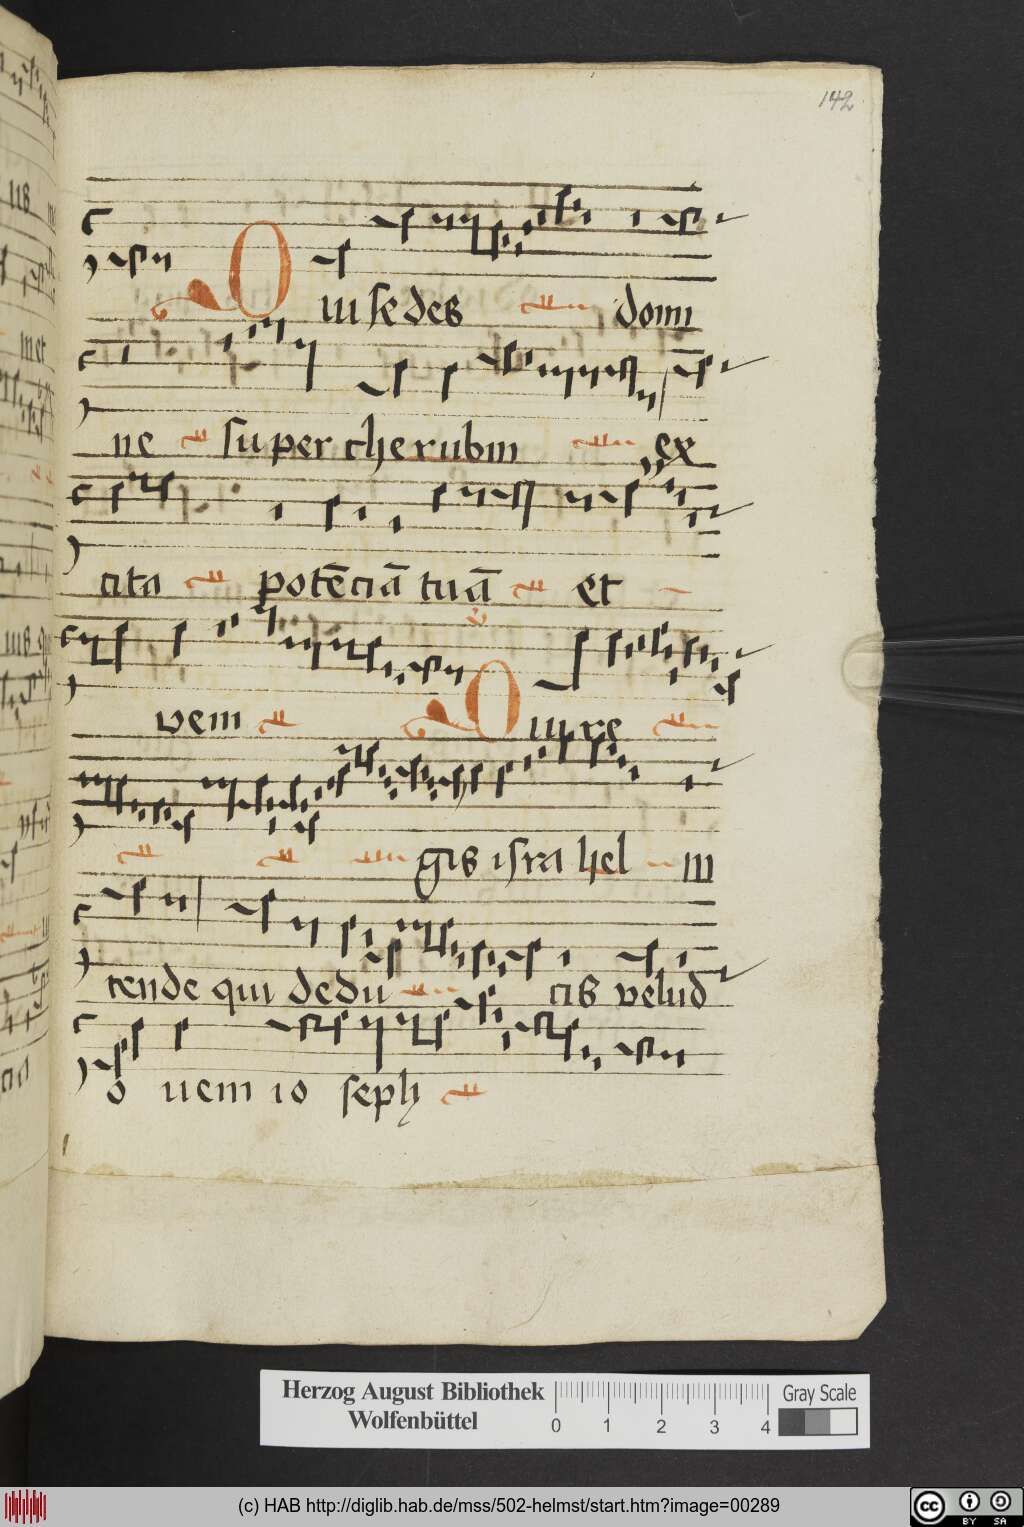 142
Qui sedes domi
ne super cherubin ex
cita potēciā tuā et
vem Qui re
gis israhel in
tende qui dedu cis velud
o uem io seph
Herzog August Bibliothek
Wolfenbüttel
0 1 2 3 4
Gray Scale
(c) HAB http://diglib.hab.de/mss/502-helmst/start.htm?image=00289
cc BY SA